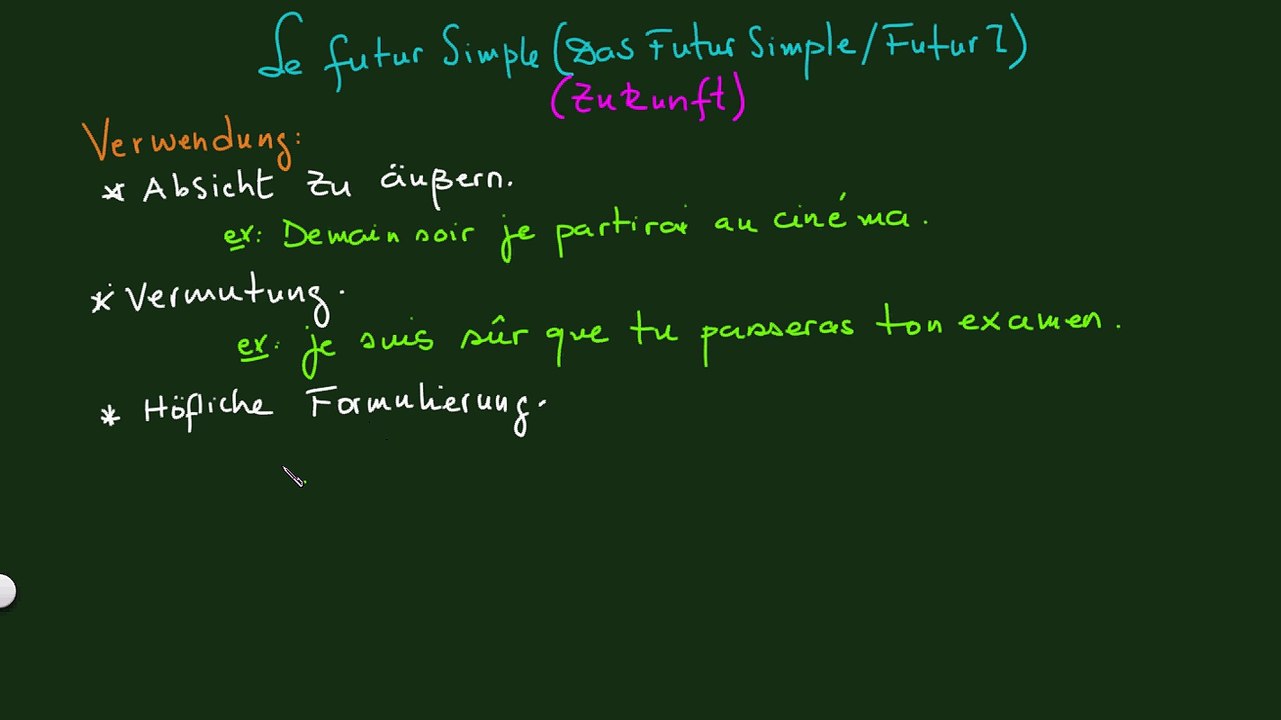 Le futur Simple (Das Futur Simple / Futur I)
(Zukunft)
Verwendung:
* Absicht zu äußern.
ex: Demain soir je partirai au cinéma.
* Vermutung.
ex: je suis sûr que tu passeras ton examen.
* Höfliche Formulierung.